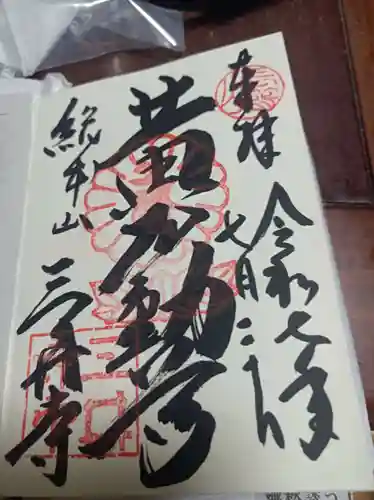 奉拝
令和七年
七月二十日
黄不動尊
総本山 三井寺